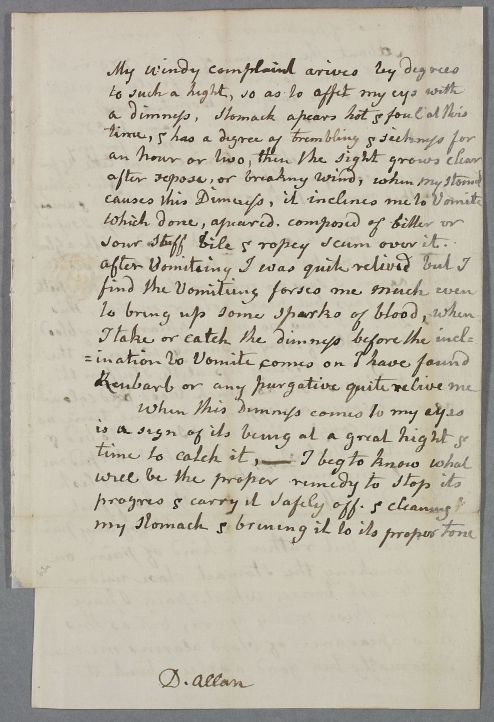 My windy complaint arives by degrees
to such a hight, so as to affet my eys with
a dimness, stomack apears hot & foul at this
time, & has a degree of trembling & sickness for
an hour or two, then the sight grows clear
after repose, or breaking wind, when my stomak
causes this Dimness, it inclines me to Vomite
which done, apeared. composed of bitter or
sour stuff bile & ropey scum over it.
after Vomitning I was quite relived but I
find the Vomiting forses me much even
to bring up some sparks of blood, when
I take or catch the dimness before the incl=
=ination to Vomite comes on I have found
Reubarb or any purgative quite relive me
When this dimness comes to my eyes
is a sign of its being at a great hight &
time to catch it, — I beg to know what
will be the proper remedy to stop its
progres & carry it safely off. & cleaning
my stomack & brining it to its proper tone
D. Allan